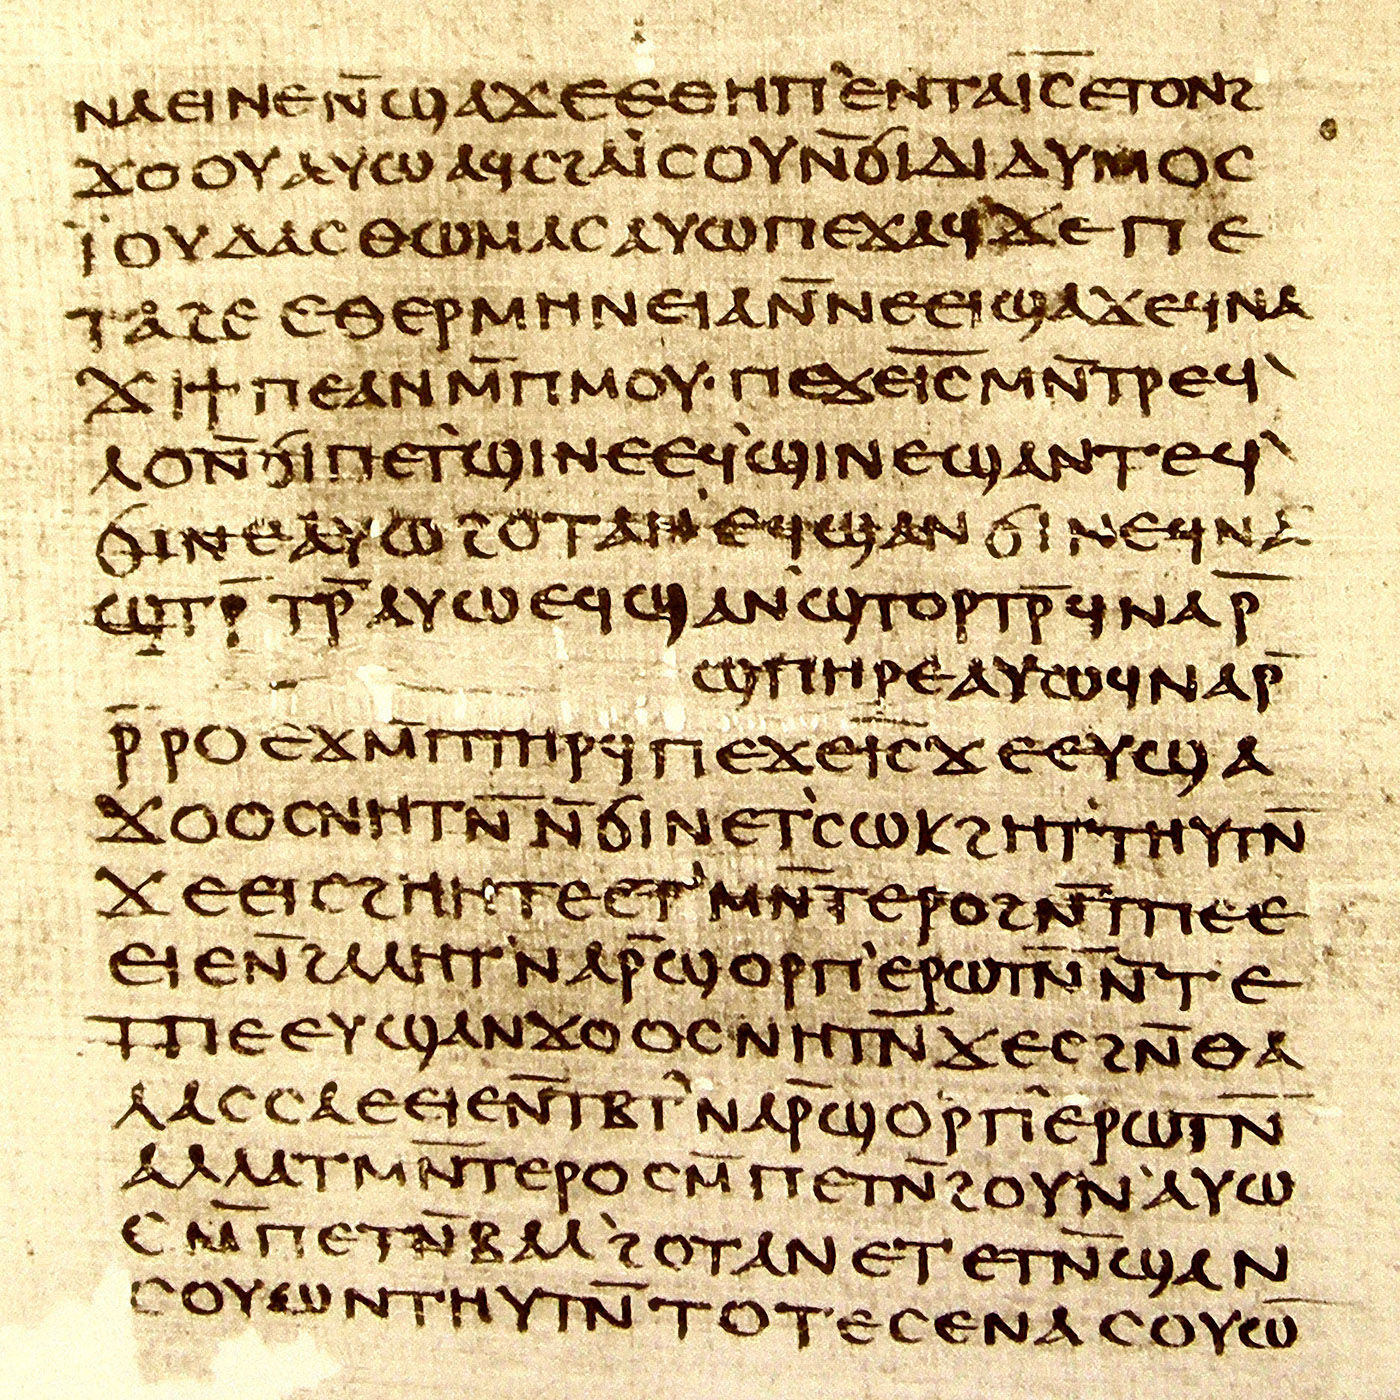 ⲛⲁⲉⲓⲛⲉⲛ̄ϣⲁϫⲉⲉⲑⲏⲡ'ⲉⲛⲧⲁⲓ̅ⲥ̅ⲉⲧⲟⲛϩ
ϫⲟⲟⲩⲁⲩⲱⲁϥⲥϩⲁⲓ̈ⲥⲟⲩⲛ̄ϭⲓⲇⲓⲇⲩⲙⲟⲥ
ⲓ̈ⲟⲩⲇⲁⲥⲑⲱⲙⲁⲥⲁⲩⲱⲡⲉϫⲁϥϫⲉⲡⲉ
ⲧⲁϩⲉⲉⲑⲉⲣⲙⲏⲛⲉⲓⲁⲛ̄ⲛⲉⲉⲓϣⲁϫⲉϥⲛⲁ
ϫⲓϯⲡⲉⲁⲛⲙ̄ⲡⲙⲟⲩ·ⲡⲉϫⲉⲓ̅ⲥ̅ⲙⲛ̄ⲧⲣⲉϥ'
ⲗⲟⲛ̄ϭⲓⲡⲉⲧ'ϣⲓⲛⲉⲉϥ'ϣⲓⲛⲉϣⲁⲛⲧⲉϥ'
ϭⲓⲛⲉⲁⲩⲱϩⲟⲧⲁⲛ'ⲉϥϣⲁⲛϭⲓⲛⲉϥⲛⲁ
ϣⲧⲣ̄ⲧⲣ̄ⲁⲩⲱⲉϥϣⲁⲛ'ϣⲧⲟⲣⲧⲣ̄ϥⲛⲁⲣ̄
ϣⲡⲏⲣⲉⲁⲩⲱϥⲛⲁⲣ̄
ⲣ̄ⲣⲟⲉϫⲙ̄ⲡⲧⲏⲣϥⲡⲉϫⲉⲓ̅ⲥ̅ϫⲉⲉⲩϣⲁ
ϫⲟⲟⲥⲛⲏⲧⲛ̄ⲛ̄ϭⲓⲛⲉⲧ'ⲥⲱⲕϩⲏⲧ'ⲧⲏⲩⲧⲛ̄
ϫⲉⲉⲓⲥϩⲏⲏⲧⲉⲉⲧ'ⲙⲛ̄ⲧⲉⲣⲟϩⲛ̄ⲧⲡⲉⲉ
ⲉⲓⲉⲛ̄ϩⲁⲗⲏⲧ'ⲛⲁⲣ̄ϣⲟⲣⲡ'ⲉⲣⲱⲧⲛ̄ⲛ̄ⲧⲉ
ⲧⲡⲉⲉⲩϣⲁⲛϫⲟⲟⲥⲛⲏⲧⲛ̄ϫⲉⲥϩⲛ̄ⲑⲁ
ⲗⲁⲥⲥⲁⲉⲉⲓⲉⲛ̄ⲧⲃⲧ'ⲛⲁⲣ̄ϣⲟⲣⲡ'ⲉⲣⲱⲧⲛ̄
ⲁⲗⲗⲁⲧⲙⲛ̄ⲧⲉⲣⲟⲥⲙ̄ⲡⲉⲧⲛ̄ϩⲟⲩⲛ'ⲁⲩⲱ
ⲥⲙ̄ⲡⲉⲧⲛ̄ⲃⲁⲗ'ϩⲟⲧⲁⲛⲉⲧⲉⲧⲛ̄ϣⲁⲛ
ⲥⲟⲩⲱⲛⲧⲏⲩⲧⲛ̄ⲧⲟⲧⲉⲥⲉⲛⲁⲥⲟⲩⲱ̄